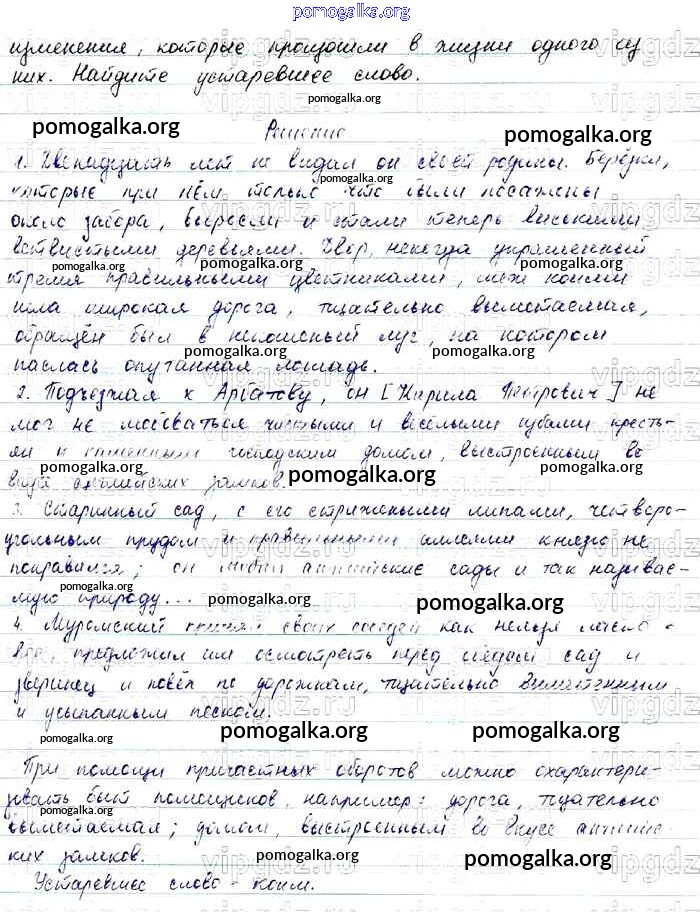 pomogalka.org
изменения, которые произошли в жизни одного из
них. Найдите устаревшее слово.
pomogalka.org
pomogalka.org
pomogalka.org
Решение
1. Двенадцать лет не видал он своей родины. Берёзки,
pomogalka.org
которые при нём только что были посажены
около забора, выросли и стали теперь высокими
ветвистыми деревьями. Двор, некогда украшенный
pomogalka.org pomogalka.org pomogalka.org
тремя правильными цветниками, меж коими
шла широкая дорога, тщательно выметаемая,
обращён был в некошеный луг, на котором
pomogalka.org pomogalka.org
паслась опутанная лошадь.
2. Подъезжая к Арбатову, он [Кирила Петрович] не
мог не любоваться чистыми и весёлыми избами кресть-
ян и каменным господским домом, выстроенным во
pomogalka.org pomogalka.org pomogalka.org
вкусе английских замков.
3. Старинный сад, с его стрижеными липами, четверо-
угольным прудом и правильными аллеями князю не
pomogalka.org pomogalka.org
понравился; он любил английские сады и так называе-
pomogalka.org
мую природу...
pomogalka.org pomogalka.org
4. Муромский принял своих соседей как нельзя ласко-
вее, предложил им осмотреть перед обедом сад и
pomogalka.org
зверинец и повёл по дорожкам, тщательно выметенным
и усыпанным песком.
pomogalka.org pomogalka.org pomogalka.org
При помощи причастных оборотов можно охарактери-
зовать быт помещиков, например: дорога, тщательно
pomogalka.org pomogalka.org
выметаемая; домом, выстроенным во вкусе английс-
ких замков.
pomogalka.org pomogalka.org
Устаревшее слово - коим.
vipgdz.ru